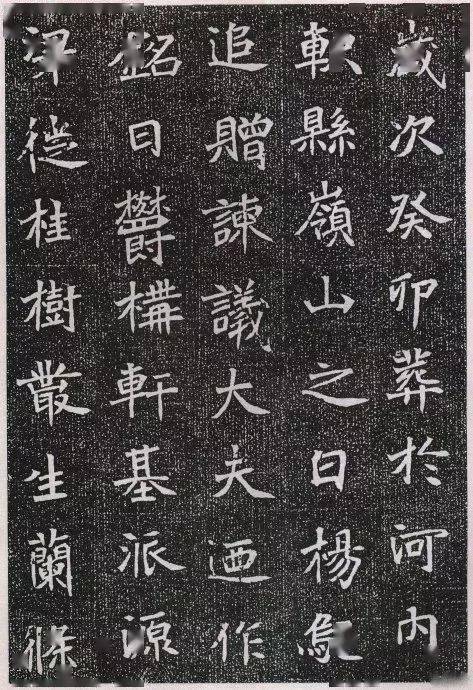 歲次癸卯葬於河內
軹縣嶺山之白楊
追贈諫議大夫迺作
銘曰鬱構軒基派源
從桂樹叢生蘭條